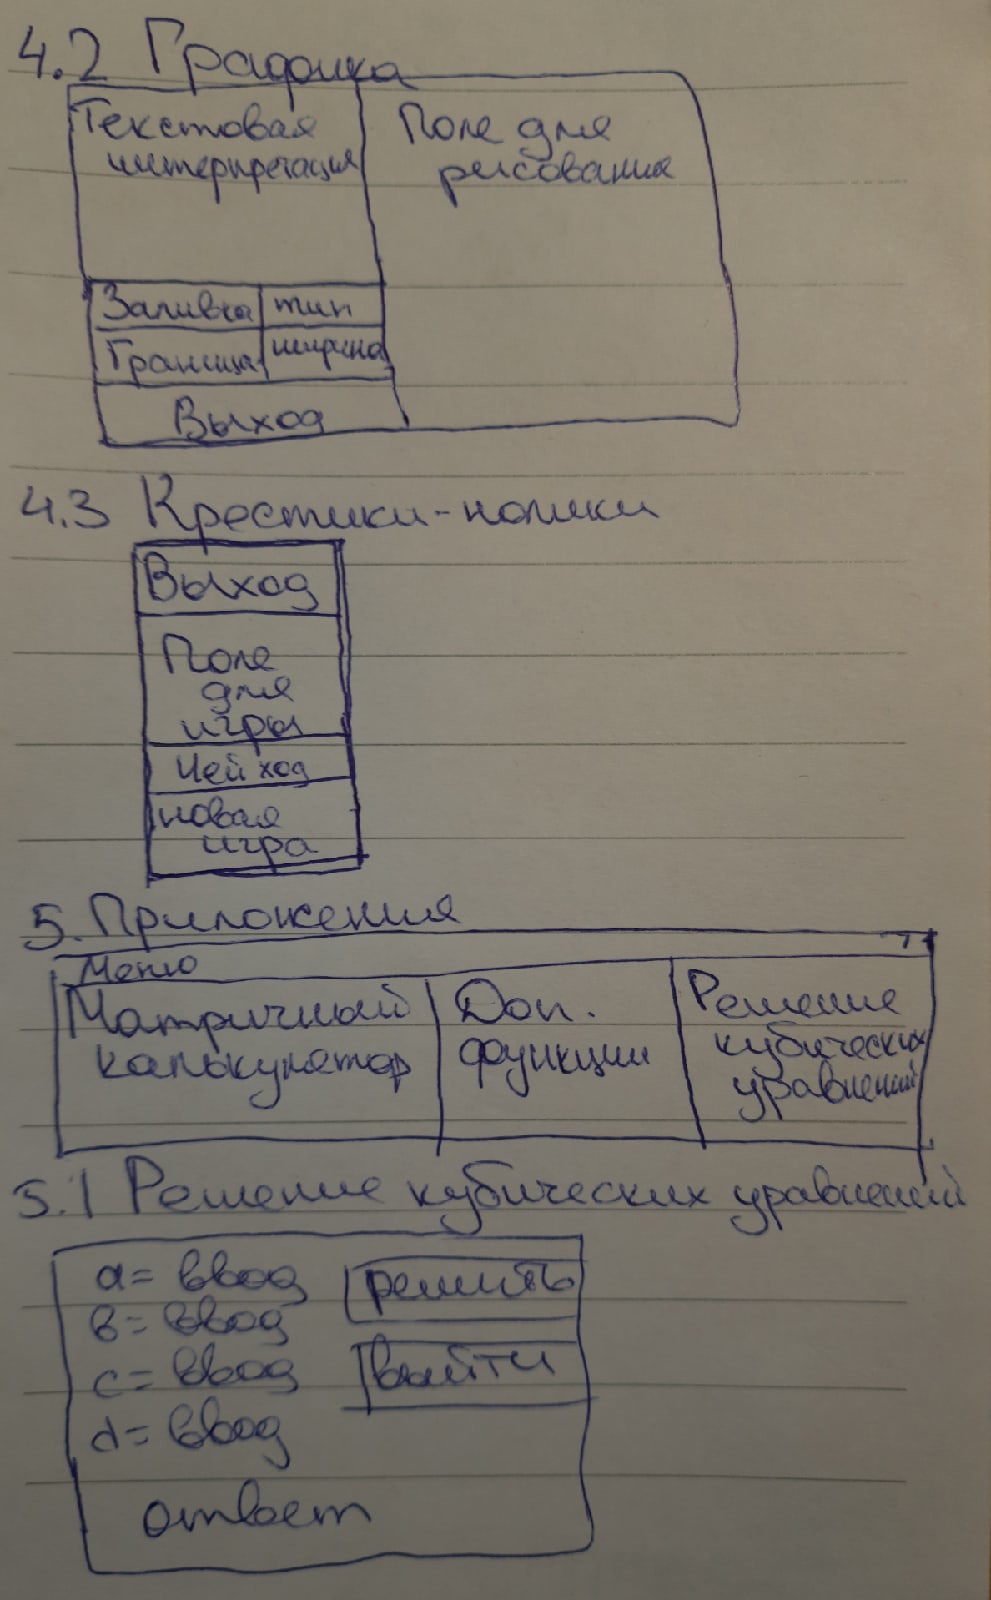 4.2 Графика
Текстовая
интерпретация
Поле для
рисования
Заливка
тип
Граница
ширина
Выход
4.3 Крестики-нолики
Выход
Поле
для
игры
Чей ход
новая
игра
5. Приложения
Меню
Матричный
калькулятор
Доп.
функции
Решение
кубических
уравнений
5.1 Решение кубических уравнений
a= ввод
решить
в= ввод
c= ввод
выйти
d= ввод
ответ